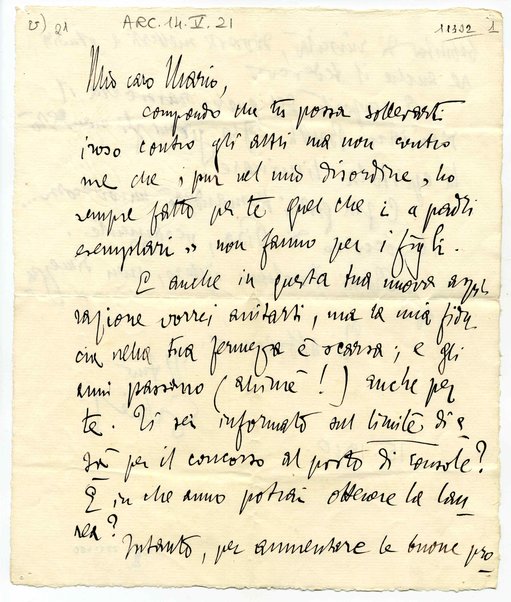 25) 91 ARC.14.V.21 11392 1
Mio caro Mario,
comprendo che tu possa sollevarti
iroso contro gli altri ma non contro
me che, pur nel mio disordine, ho
sempre fatto per te quel che i "padri
esemplari" non fanno per i figli.
E anche in questa tua nuova aspi-
razione vorrei aiutarti, ma la mia fidu
cia nella tua fermezza è scarsa; e gli
anni passano (ahimè!) anche per
te. Ti sei informato sul limite di e
tà per il concorso al posto di console?
E in che anno potrai ottenere la lau
rea?
Intanto, per aumentare le buone pro